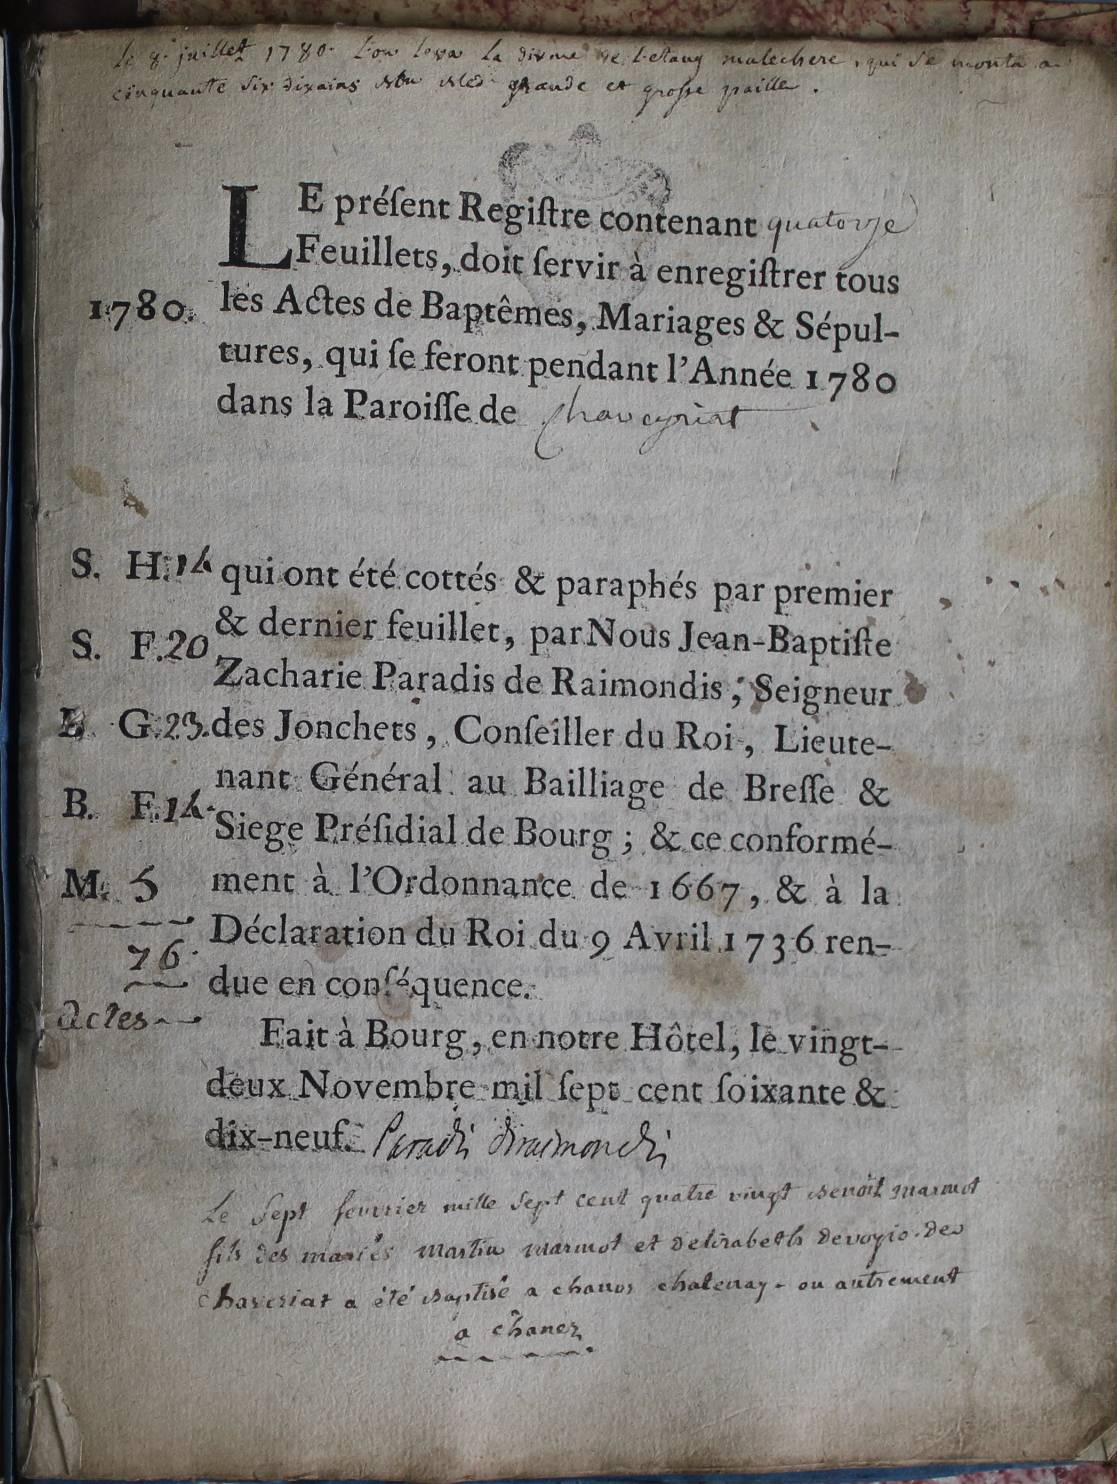 le 8e juillet 1780. l'on leva la dixme de l'etang malechere, qui se monta a
cinquante six dixains de bled grande et grosse paille.
LE préſent Regiſtre contenant quatorze
Feuillets, doit ſervir à enregiſtrer tous
1780. les Actes de Baptêmes, Mariages & Sépul-
tures, qui ſe feront pendant l'Année 1780
dans la Paroiſſe de Chaveyriat
S. H. 14 qui ont été cottés & paraphés par premier
& dernier feuillet, par Nous Jean-Baptiſte
S. F. 20
Zacharie Paradis de Raimondis, Seigneur
B. G. 23. des Jonchets, Conſeiller du Roi, Lieute-
nant Général au Bailliage de Breſſe &
B. F. 14.
Siege Préſidial de Bourg; & ce conformé-
M. 5 ment à l'Ordonnance de 1667, & à la
Déclaration du Roi du 9 Avril 1736 ren-
76.
due en conſéquence.
actes
Fait à Bourg, en notre Hôtel, le vingt-
deux Novembre mil ſept cent ſoixante &
dix-neuf. Paradis deraimondis
Le sept fevrier mille sept cent quatre vingt benoit marmot
fils des mariés martin marmot et delisabeth devoyio de
chaveriat a été baptisé a chanos chatenay - ou autrement
a chanez